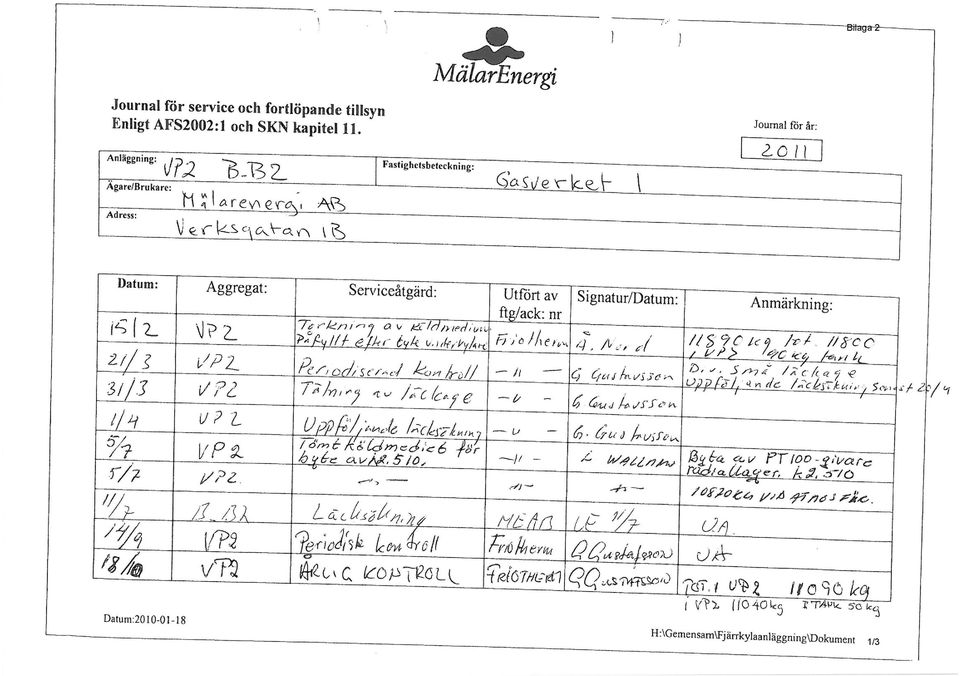 Bilaga 2
MälarEnergi
Journal för service och fortlöpande tillsyn
Enligt AFS2002:1 och SKN kapitel 11.
Journal för år:
2011
Anläggning: VP2 B-B2
Fastighetsbeteckning: Gasverket 1
Ägare/Brukare: Mälarenergi AB
Adress: Verksgatan 1B
Datum: Aggregat: Serviceåtgärd: Utfört av ftg/ack: nr Signatur/Datum: Anmärkning:
15/2 VP2 Torkning av köldmedium
Påfyllt efter byte Friotherm 11590 kg tot.
21/3 VP2 Periodiserad kontroll – 〃 – G Gustavsson D.v. små läckage
31/3 VP2 Tätning av läckage – 〃 – G. Gustavsson Uppföljande läcksökning senast 20/4
1/4 VP2 Uppföljande läcksökning – 〃 – G. Gustavsson
5/7 VP2 Tömt köldmedie för
byte av k2.510. – 〃 – Byte av PT100-givare
radiallager. k2.510
5/7 VP2. – 〃 – – 〃 – – 〃 – 10820 kg VID
11/7 B-B2 Läcksökning MEAB LE 11/7 UA.
14/9 VP2 Periodisk kontroll Friotherm G Gustafsson UA
18/10 VP2 ÅRLIG KONTROLL FRIOTHERM G GUSTAFSSON TOT. I VP2 11090 kg
I VP2 11040 kg I TANK 50 kg
Datum:2010-01-18
H:\Gemensam\Fjärrkylaanläggning\Dokument 1/3